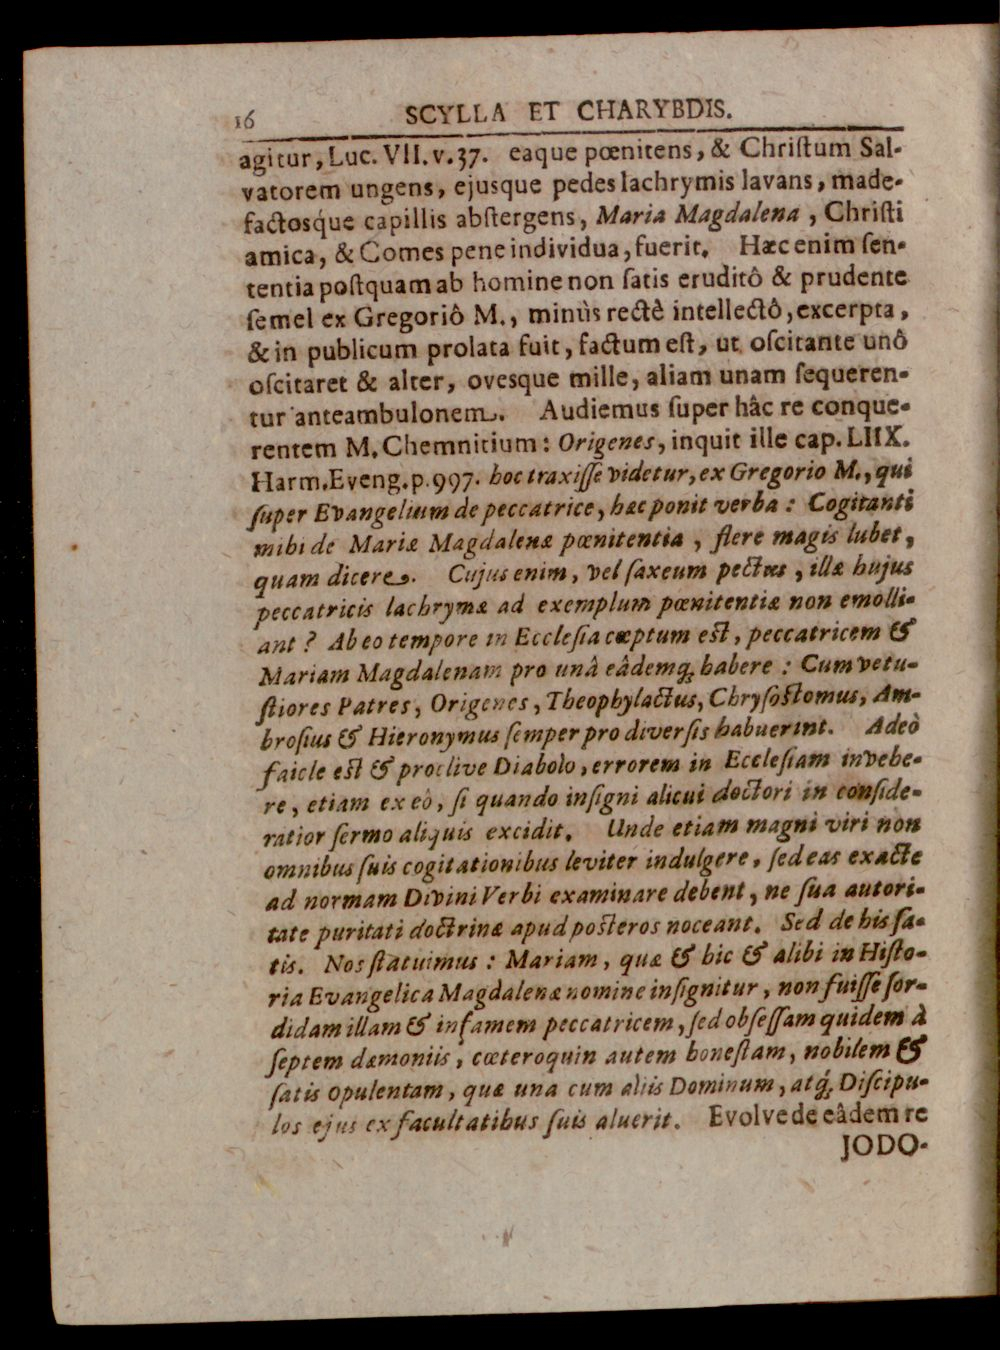 16 SCYLLA ET CHARYBDIS.
agitur, Luc. VII. v. 37. eaque pœnitens, & Chriſtum Sal-
vatorem ungens, ejusque pedes lachrymis lavans, made-
factosq́ue capillis abſtergens, Maria Magdalena, Chriſti
amica, & Comes pene individua, fuerit. Hæc enim ſen-
tentia poſtquam ab homine non ſatis eruditô & prudente
ſemel ex Gregoriô M., minùs rectè intellectô, excerpta,
& in publicum prolata fuit, factum eſt, ut oſcitante unô
oſcitaret & alter, ovesque mille, aliam unam ſequeren-
tur anteambulonem. Audiemus ſuper hâc re conque-
rentem M. Chemnitium: Origenes, inquit ille cap. LIIX.
Harm. Eveng. p. 997. hoc traxiſſe videtur, ex Gregorio M., qui
ſuper Evangelium de peccatrice, hæc ponit verba: Cogitanti
mihi de Mariæ Magdalenæ pœnitentia, flere magis lubet,
quam dicere. Cujus enim, vel ſaxeum pectus, illæ hujus
peccatricis lachrymæ ad exemplum pœnitentiæ non emolli-
ant? Ab eo tempore in Eccleſia cœptum eſt, peccatricem &
Mariam Magdalenam pro unâ eâdemq; habere: Cum vetu-
ſtiores Patres, Origenes, Theophylactus, Chryſoſtomus, Am-
broſius & Hieronymus ſemper pro diverſis habuerint. Adeò
faicle eſt & proclive Diabolo, errorem in Eccleſiam invehe-
re, etiam ex eò, ſi quando inſigni alicui doctori in conſide-
ratior ſermo aliquis excidit. Unde etiam magni viri non
omnibus ſuis cogitationibus leviter indulgere, ſed eas exacte
ad normam Divini Verbi examinare debent, ne ſua autori-
tate puritati doctrinæ apud poſteros noceant. Sed de his ſa-
tis. Nos ſtatuimus: Mariam, quæ & hic & alibi in Hiſto-
ria Evangelica Magdalenæ nomine inſignitur, non fuiſſe ſor-
didam illam & infamem peccatricem, ſed obſeſſam quidem à
ſeptem dæmoniis, cœteroquin autem honeſtam, nobilem &
ſatis opulentam, quæ una cum aliis Dominum, atq́; Diſcipu-
los ejus ex facultatibus ſuis aluerit. Evolve de eâdem re
JODO-